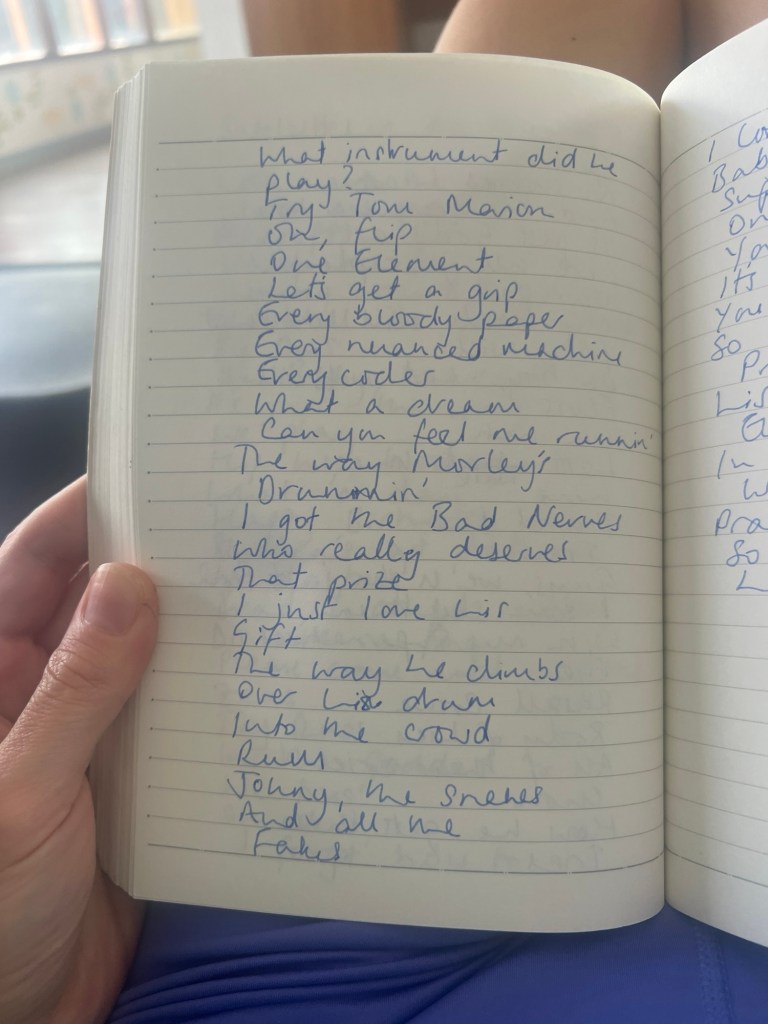 What instrument did he
play?
Try Tom Marion
Oh, flip
One Element
Let's get a grip
Every bloody paper
Every nuanced machine
Every coder
What a dream
Can you feel me runnin'
The way Morley's
Drummin'
I got the Bad Nerves
Who really deserves
That prize
I just love his
Gift
The way he climbs
Over his drum
Into the crowd
Runs
Jonny, the Snakes
And all the
Fakes
I
Bab
On
It's
You
So
In
So